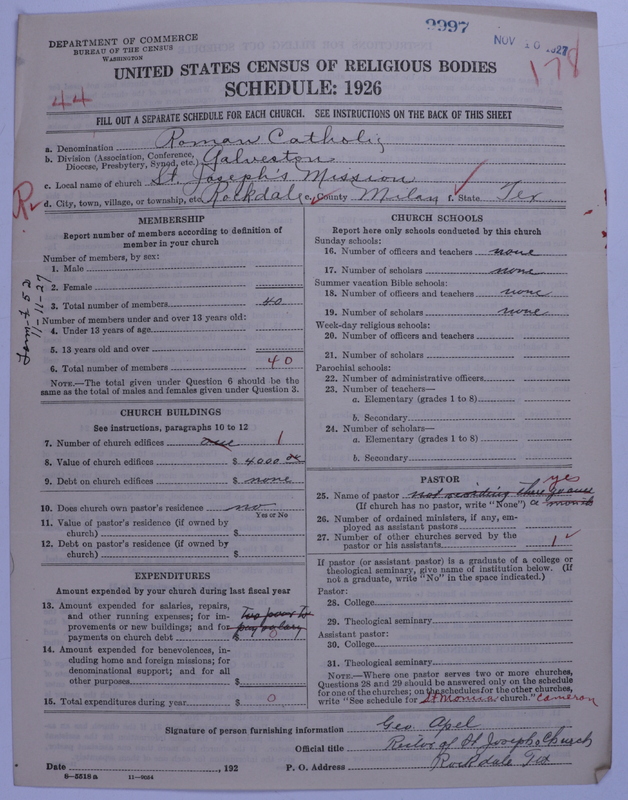 9997
NOV 10 1927
DEPARTMENT OF COMMERCE
BUREAU OF THE CENSUS
WASHINGTON
178
UNITED STATES CENSUS OF RELIGIOUS BODIES
SCHEDULE: 1926
44
FILL OUT A SEPARATE SCHEDULE FOR EACH CHURCH. SEE INSTRUCTIONS ON THE BACK OF THIS SHEET
a. Denomination Roman Catholic
b. Division (Association, Conference, Diocese, Presbytery, Synod, etc.) Galveston
c. Local name of church St. Joseph's Mission
d. City, town, village, or township, etc. Rockdale e. County Milam f. State Tex
MEMBERSHIP
Report number of members according to definition of
member in your church
Number of members, by sex:
1. Male
2. Female
3. Total number of members 40
Number of members under and over 13 years old:
4. Under 13 years of age
5. 13 years old and over
6. Total number of members 40
NOTE.—The total given under Question 6 should be the
same as the total of males and females given under Question 3.
11-11-27
CHURCH BUILDINGS
See instructions, paragraphs 10 to 12
7. Number of church edifices one 1
8. Value of church edifices $ 4000 00
9. Debt on church edifices $ none
10. Does church own pastor's residence no
Yes or No
11. Value of pastor's residence (if owned by
church) $
12. Debt on pastor's residence (if owned by
church) $
EXPENDITURES
Amount expended by your church during last fiscal year
13. Amount expended for salaries, repairs,
and other running expenses; for im- Too poor to
provements or new buildings; and for pay salary
payments on church debt $ 0
14. Amount expended for benevolences, in-
cluding home and foreign missions; for
denominational support; and for all
other purposes $
15. Total expenditures during year $ 0
CHURCH SCHOOLS
Report here only schools conducted by this church
Sunday schools:
16. Number of officers and teachers none
17. Number of scholars none
Summer vacation Bible schools:
18. Number of officers and teachers none
19. Number of scholars none
Week-day religious schools:
20. Number of officers and teachers
21. Number of scholars
Parochial schools:
22. Number of administrative officers
23. Number of teachers—
a. Elementary (grades 1 to 8)
b. Secondary
24. Number of scholars—
a. Elementary (grades 1 to 8)
b. Secondary
PASTOR
yes
25. Name of pastor not residing there
(If church has no pastor, write "None") a month
26. Number of ordained ministers, if any, em-
ployed as assistant pastors
27. Number of other churches served by the
pastor or his assistants 1
If pastor (or assistant pastor) is a graduate of a college or
theological seminary, give name of institution below. (If
not a graduate, write "No" in the space indicated.)
Pastor:
28. College
29. Theological seminary
Assistant pastor:
30. College
31. Theological seminary
NOTE.—Where one pastor serves two or more churches,
Questions 28 and 29 should be answered only on the schedule
for one of the churches; on the schedules for the other churches,
write "See schedule for St Monica church." Cameron
Signature of person furnishing information Geo. Apel
Official title Rector of St Joseph's Church
Date , 192 P. O. Address Rockdale Tex
8-5518 a 11-9054